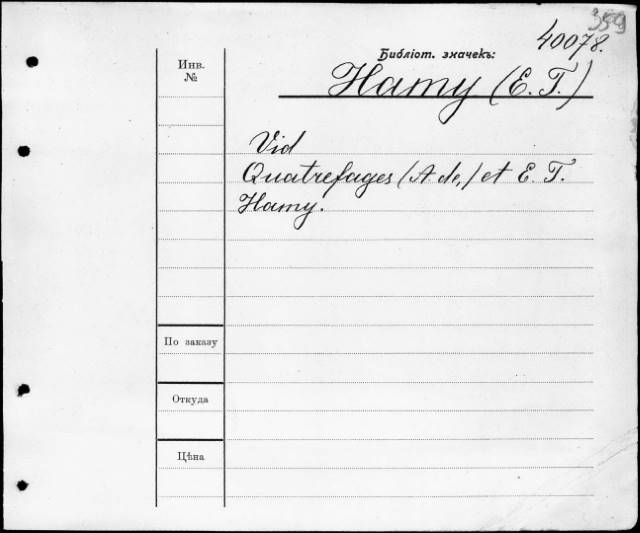 359
40078.
Библіот. значекъ:
Инв.
№
Hamy (E. T.)
Vid
Quatrefages (A de,) et E. T.
Hamy.
По заказу
Откуда
Цѣна